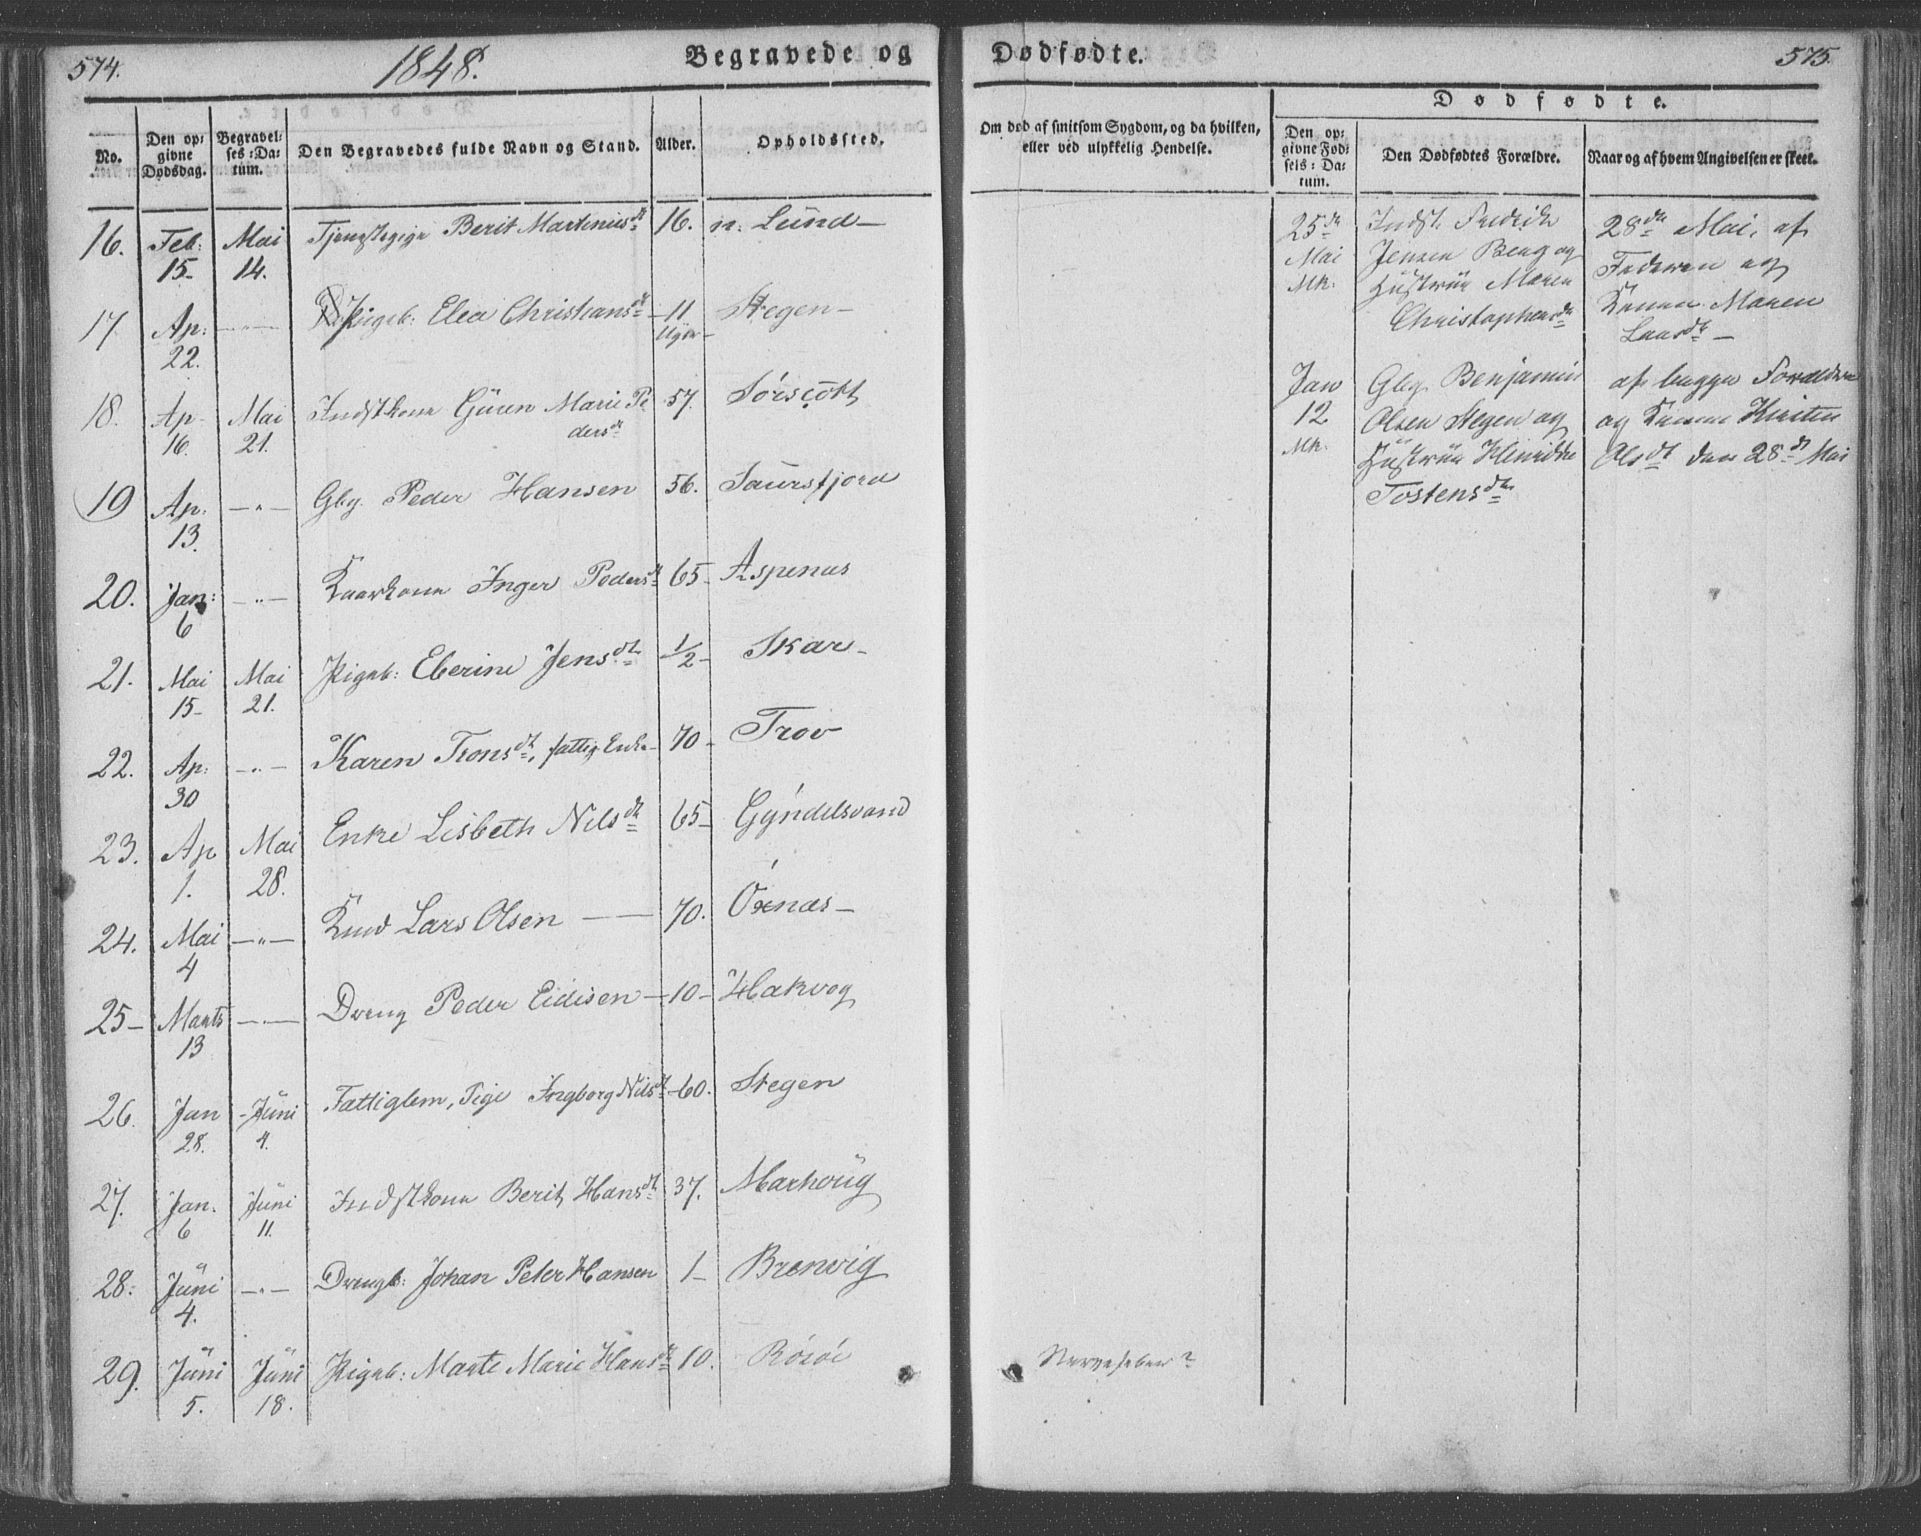 574.
1848.
Begravede og
No.
Den op-
givne
Dødsdag.
Begravel-
ses-Da-
tum.
Den Begravedes fulde Navn og Stand.
Alder.
Opholdssted.
16. Feb: 15- Mai 14. Tjenestepige Berit Martinusdt 16. n. Lund-
17. Ap: 22. -"- Pigeb: Elea Christiansdt 11 Uger Stegen-
18. Ap- 16. Mai 21. Indstkone Guren Marie Pe
dersdt 57. Sørscott
19 Ap. 13. -"- Gbg. Peder Hansen 56. Saursfjord
20. Jan: 6 -"- Kaarkone Inger Pedersdt 65- Aspenæs
21. Mai 15- Mai 21. Pigeb: Eberine Jensdt 1/2- Skar-
22. Ap: 30 -"- Karen Tronsdt, fattig Enke- 70- Trov
23. Ap 1. Mai 28. Enke Lisbeth Nilsdt 65- Gyndelsvand
24. Mai 4 -"- Lars Olsen 70. Öxnæs-
25- Marts 13 -"- Dreng Peder Eidisen- 10- Hakvog
26. Jan 28. Juni 4. Fattiglem, Pige Ingborg Nilsdt 60. Stegen
27. Jan. 6 Juni 11. Indstkone Berit Hansdt 37. Marhoug
28: Juni 4. -"- Drengb: Johan Peter Hansen 1- Brenvig
29. Juni 5. Juni 18. Pigeb: Marte Marie Hansdt 10. Röröe
Dødfødte.
575.
Om død af smitsom Sygdom, og da hvilken,
eller ved ulykkelig Hendelse.
Nervefeber?
Dødfødte.
Den op-
givne Fød-
sels-Da-
tum.
Den Dødfødtes Forældre.
Naar og af hvem Angivelsen er skeet.
25de
Mai
Mk.
Indst. Fredrik
Jensen Berg og
Hustrue Maren
Christophersdt
28de Mai, af
Faderen og
Konen Maren
Larsdt-
Jan
12
Mk.
Gbg. Benjamin
Olsen Stegen og
Hustrue
Tostensdt
af begge Forældre
og Konen Kirsten
Olsdt den 28de Mai